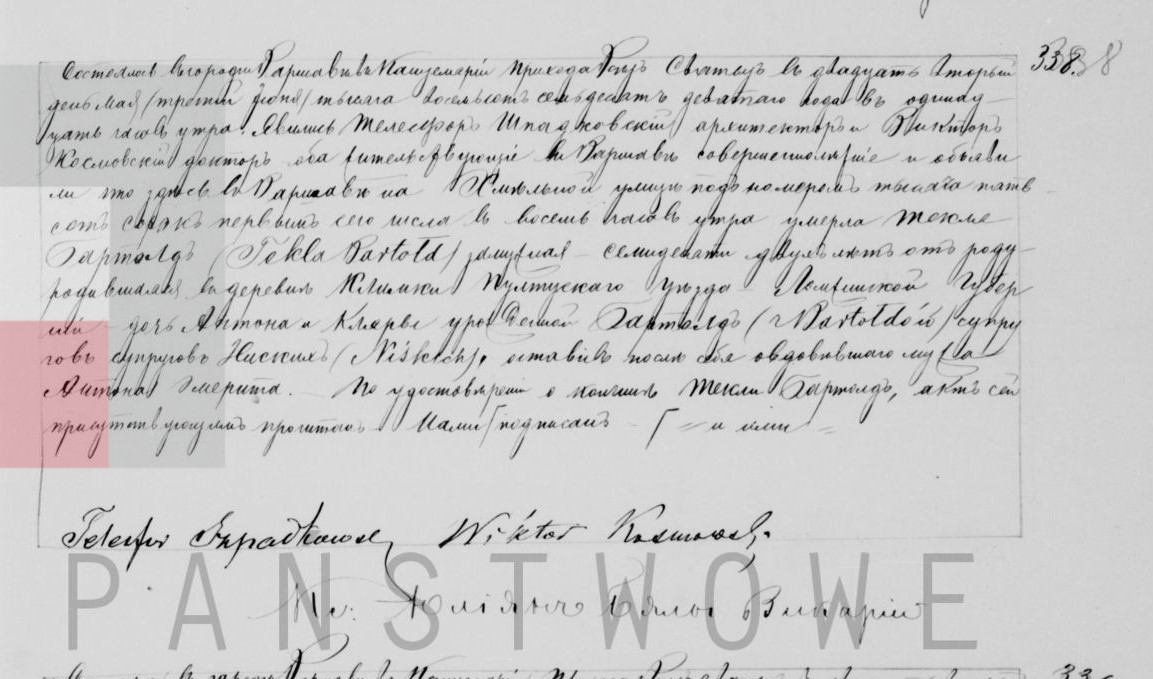 338.
Состоялось въ городѣ Варшавѣ въ Канцеляріи прихода Всѣхъ Святыхъ въ двадцать вторый
день Мая /третій Іюня/ тысяча восемьсотъ семьдесятъ девятаго года въ одинад-
цать часовъ утра. Явились Телесфоръ Шпадковскій архитекторъ и Викторъ
Космовскій докторъ оба жительствующіе въ Варшавѣ совершеннолѣтніе и объяви
ли что здѣсь въ Варшавѣ на улицѣ подъ номеромъ тысяча пять
сотъ сорокъ первымъ сего числа въ восемь часовъ утра умерла Текле
Бартолдъ /Tekla Bartold/ замужная семидесяти двухъ лѣтъ отъ роду
родившаяся въ деревнѣ Климки Пултускаго уѣзда Ломжинской Губер
ніи дочь Антона и Клары урожденной Бартолдъ /Bartoldów/ супру
говъ супруговъ Нискихъ /Niskich/, оставивъ послѣ себя овдовѣвшаго мужа
Антона Эмерита. По удостовѣреніи о кончинѣ Текли Бартолдъ, актъ сей
присутствующимъ прочитанъ Нами подписанъ и ими
Telesfor Szpadkowski Wiktor Kosmowski
Кс: Юліянъ Бялы Викарій
PANSTWOWE